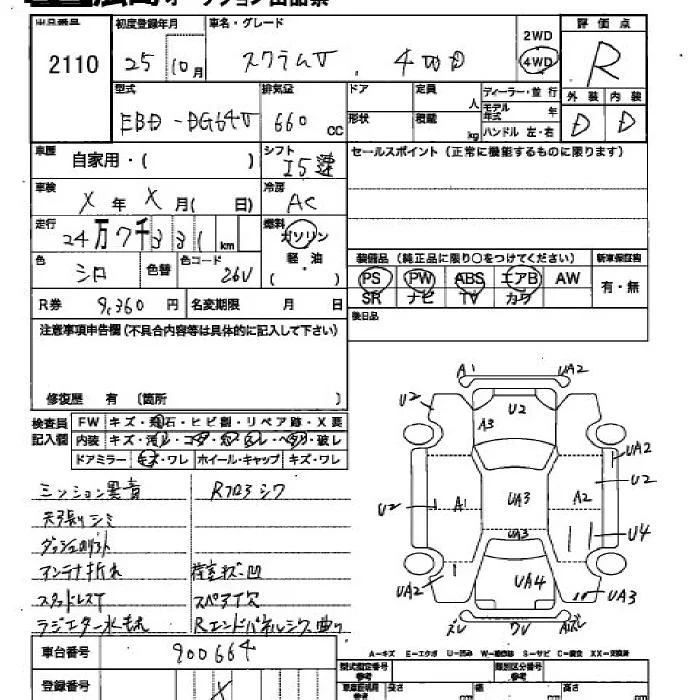 出品番号 初度登録年月 車名・グレード 2WD 評価点
2110 25 10月 スクラムV. 4WD 4WD R
型式 排気量 ドア 定員 人 ディーラー・並行 外装 内装
EBD-DG64V 660 CC 形状 積載 kg モデル年式 年 D D
ハンドル 左・右
車歴 自家用・( ) シフト I5速 セールスポイント (正常に機能するものに限ります)
車検 X年X月( 日) 冷房 AC
走行 24万7千331 km 燃料 ガソリン
軽油
( )
色 シロ 色替 色コード 26V 装備品 (純正品に限り○をつけてください) 新車保証書
PS PW ABS エアB AW 有・無
SR ナビ TV カワ
R券 9,360円 名変期限 月 日 後日品
注意事項申告欄(不具合内容等は具体的に記入して下さい)
修復歴 有 〔箇所 〕
検査員記入欄 FW キズ・飛石・ヒビ割・リペア跡・X要
内装 キズ・汚レ・コゲ・穴・スレ・ヘタリ・破レ
ドアミラー キズ・ワレ ホイール・キャップ キズ・ワレ
ミッション異音 Rフロアシワ
天張りシミ
ダッシュのリフト
アンテナ折れ 荷室キズ凹
スタッドレスT スペアT欠
ラジエター水もれ Rエンドパネルシワ曲り
A1 UA2
U2 U2 A3
UA2
U2
U2 A1 UA3 A2
UA3 U4
UA2 UA4 UA3
ズレ ワV Aズレ
A-キズ E-エクボ U-凹み W-補修跡 S-サビ C-腐食 XX-交換済
車台番号 900664 型式指定番号 類別区分番号
登録番号 X 長さ cm 幅 cm 高さ cm